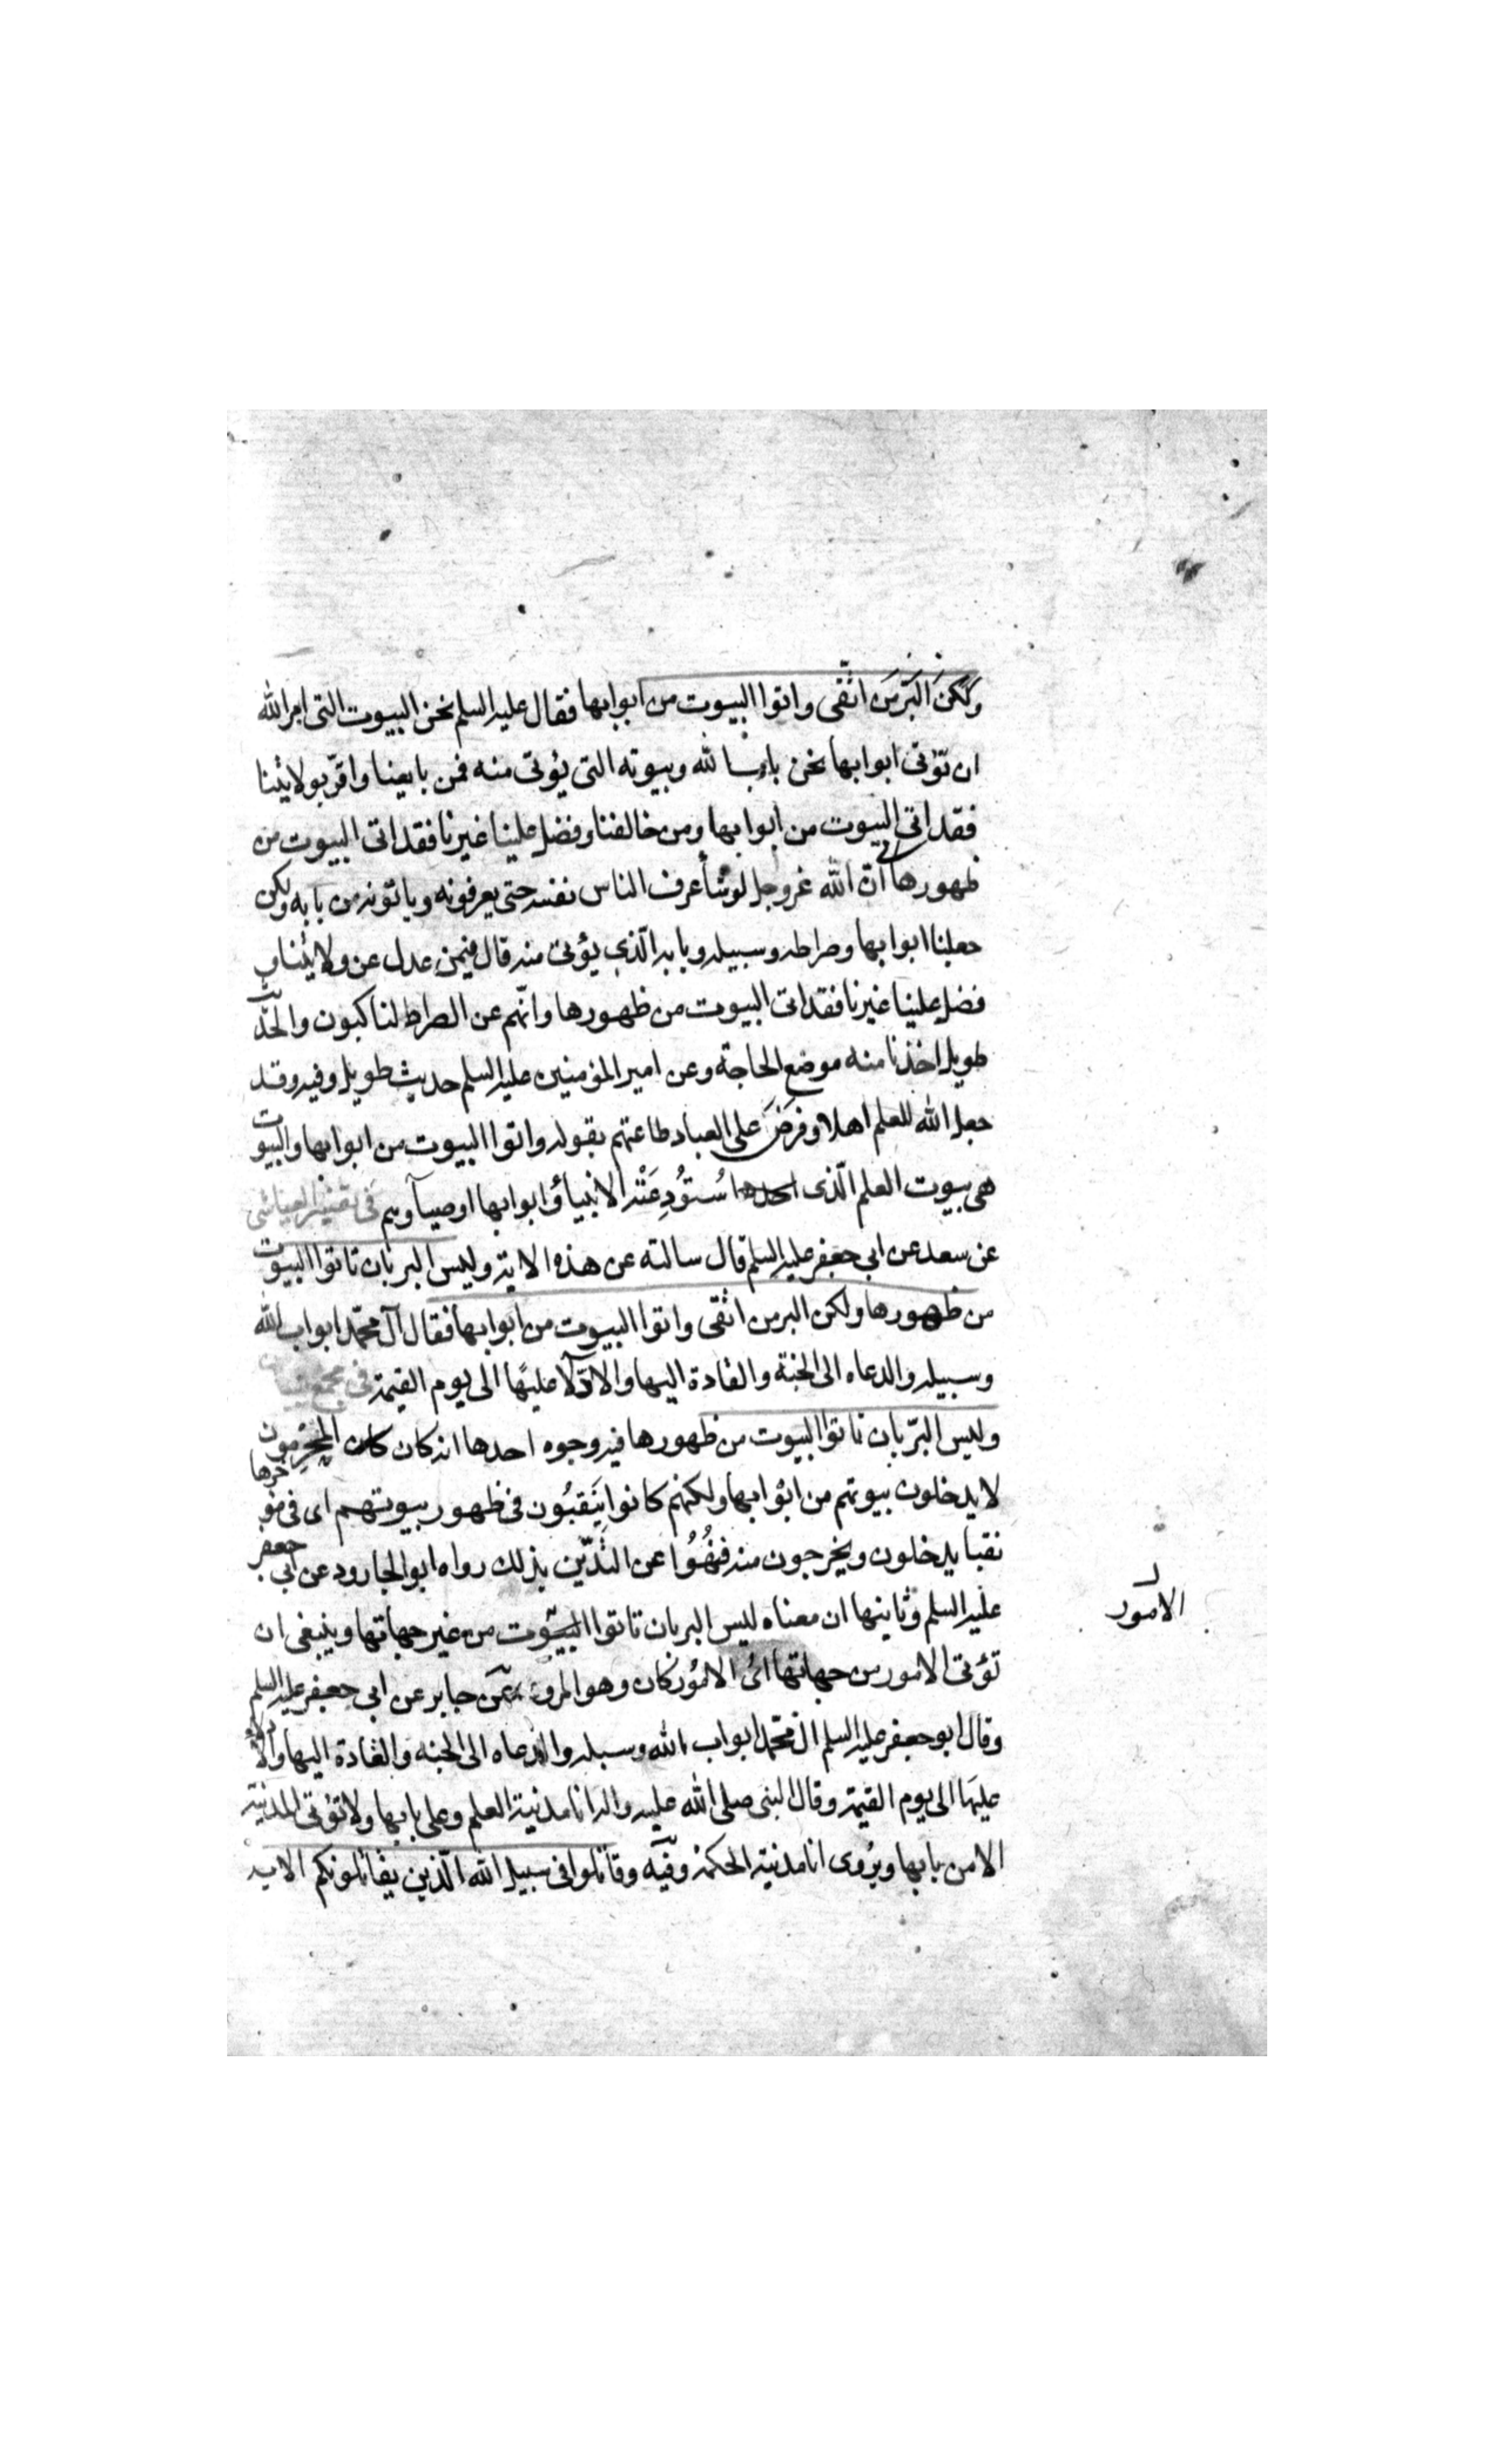 ولكنَّ البرّ من اتّقى واتوا البيوت من ابوابها فقال عليه السلم نحن البيوت التى امر الله
ان تؤتى ابوابها نحن باب الله وبيوته التى يؤتى منه فمن بايعنا واقرّ بولايتنا
فقد اتى البيوت من ابوابها ومن خالفنا وفضل علينا غيرنا فقد اتى البيوت من
ظهورها انّ الله عزوجل لو شأ عرف الناس نفسه حتى يعرفونه وياتونه من بابه ولكن
جعلنا ابوابها وصراطه وسبيله وبابه الّذي يؤتى منه قال فمن عدل عن ولايتنا و
فضل علينا غيرنا فقد اتى البيوت من ظهورها وانّهم عن الصراط لناكبون والحديث
طويل اخذنا منه موضع الحاجة وعن امير المؤمنين عليه السلم حديث طويل وفيه وقد
جعل الله للعلم اهلا وفرَضَ على العباد طاعتهم بقوله واتوا البيوت من ابوابها والبيوت
هى بيوت العلم الّذى استُودِعَتْه الانبيأ وابوابها اوصيآوهم فى تفسير العياشى
عن سعد عن ابى جعفر عليه السلم قال سالته عن هذه الاية وليس البر بان تاتوا البيوت
من ظهورها ولكن البر من اتقى واتوا البيوت من ابوابها فقال آل محمّد ابواب الله
وسبيله والدعاه الى الجنة والقادة اليها والادّلآ عليها الى يوم القيمة فى مجمع البيان
وليس البرّ بان تاتوا البيوت من ظهورها فيه وجوه احدها انه كان المحرمون
لا يدخلون بيوتهم من ابوابها ولكنهم كانوا ينَقبُون فى ظهور بيوتهم اى فى مؤخرها
نقبا يدخلون ويخرجون منه فنُهُوُا عن التديّن بذلك رواه ابو الجارود عن ابى جعفر
عليه السلم وثانيها ان معناه ليس البر بان تاتوا البيوت من غير جهاتها وينبغى ان
تؤتى الامور من جهاتها اىّ الامور كان وهو المروى عن جابر عن ابى جعفر عليه السلم
وقال ابو جعفر عليه السلم ال محمّد ابواب الله وسبله والدعاه الى الجنه والقادة اليها والادلاّء
عليها الى يوم القيمة وقال النبى صلى الله عليه واله انا مدينة العلم وعلى بابها ولا تؤتى المدينة
الا من بابها ويُروى انا مدينة الحكمة وفيه وقاتلوا فى سبيل الله الّذين يقاتلونكم الاية
الامور